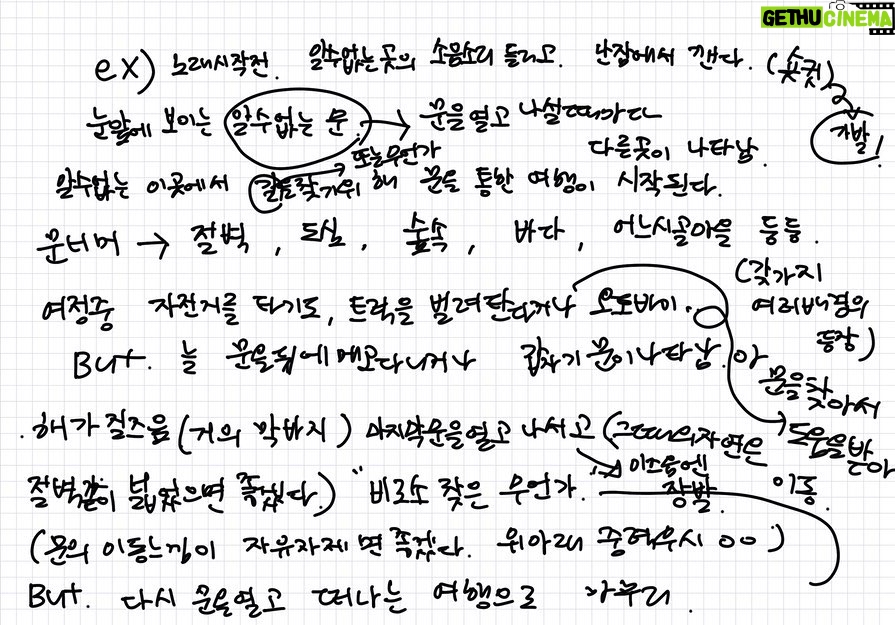 GETHU CINEMA
ex) 노래시작전. 알수없는곳의 소음소리 들리고. 난집에서 깬다. (숏컷)
단발!
눈앞에 보이는 알수없는 문. → 문을열고 나설때마다
다른곳이 나타남.
또는무언가
알수없는 이곳에서 길을찾기위해 문을 통한 여행이 시작된다.
문너머 → 절벽, 도심, 숲속, 바다, 어느시골마을 등등.
(갖가지
여러배경의
등장)
여정중 자전거를 타기도, 트럭을 빌려탄다거나 오토바이..
But. 늘 문을뒤에메고다니거나 갑자기 문이나타남. or
문을 찾아서
도움을 받아
이동
. 해가 질즈음 (거의 막바지) 마지막문을열고 나서고 (그때의자연은
이쯤엔
장발.
절벽같이 넓었으면 좋겠다.) "비로소 찾은 무언가.
(문의 이동느낌이 자유자제면 좋겠다. 위아래 중력무시 ㅇㅇ)
But. 다시 문을열고 떠나는 여행으로 마무리.